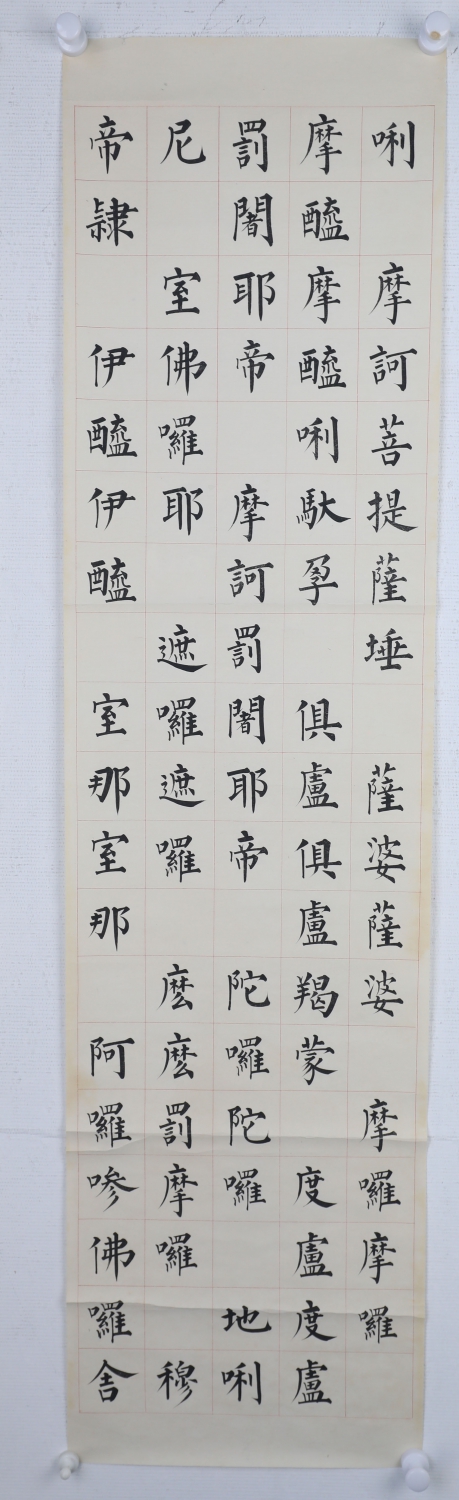 唎 摩訶菩提薩埵 薩婆薩婆 摩囉摩囉
摩醯摩醯唎馱孕 俱盧俱盧羯蒙 度盧度盧
罰闍耶帝 摩訶罰闍耶帝 陀囉陀囉 地唎
尼 室佛囉耶 遮囉遮囉 麼麼罰摩囉 穆
帝隸 伊醯伊醯 室那室那 阿囉嘇佛囉舍